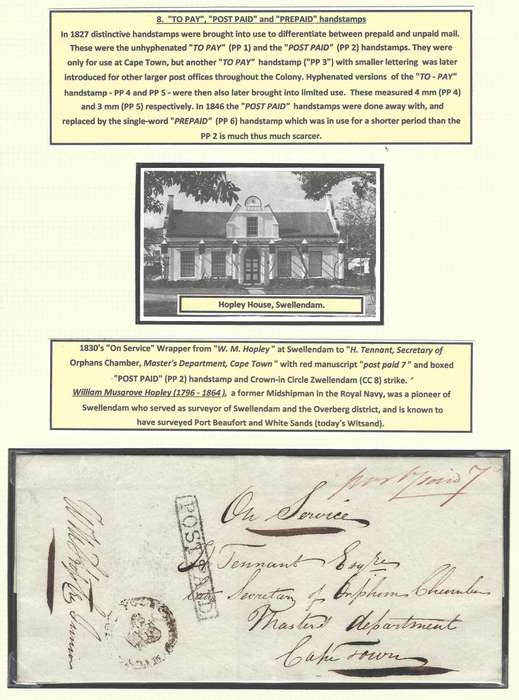 8. "TO PAY", "POST PAID" and "PREPAID" handstamps
In 1827 distinctive handstamps were brought into use to differentiate between prepaid and unpaid mall.
These were the unhyphenated "TO PAY" (PP 1) and the "POST PAID" (PP 2) handstamps. They were
only for use at Cape Town, but another "TO PAY" handstamp ("PP 3") with smaller lettering was later
introduced for other larger post offices throughout the Colony. Hyphenated versions of the "TO - PAY"
handstamp - PP 4 and PP 5 - were then also later brought into limited use. These measured 4 mm (PP 4)
and 3 mm (PP 5) respectively. In 1846 the "POST PAID" handstamps were done away with, and
replaced by the single-word "PREPAID" (PP 6) handstamp which was in use for a shorter period than the
PP 2 is much thus much scarcer.
Hopley House, Swellendam.
1830's "On Service" Wrapper from "W. M. Hopley" at Swellendam to "H. Tennant, Secretary of
Orphans Chamber, Master's Department, Cape Town" with red manuscript "post paid 7" and boxed
"POST PAID" (PP 2) handstamp and Crown-in Circle Zwellendam (CC 8) strike.
William Musgrove Hopley (1796 - 1864), a former Midshipman in the Royal Navy, was a pioneer of
Swellendam who served as surveyor of Swellendam and the Overberg district, and is known to
have surveyed Port Beaufort and White Sands (today's Witsand).
post paid 7
On Service
POST PAID
Tennant Esqre
Secretary of Orphan Chamber
Masters department
Cape Town